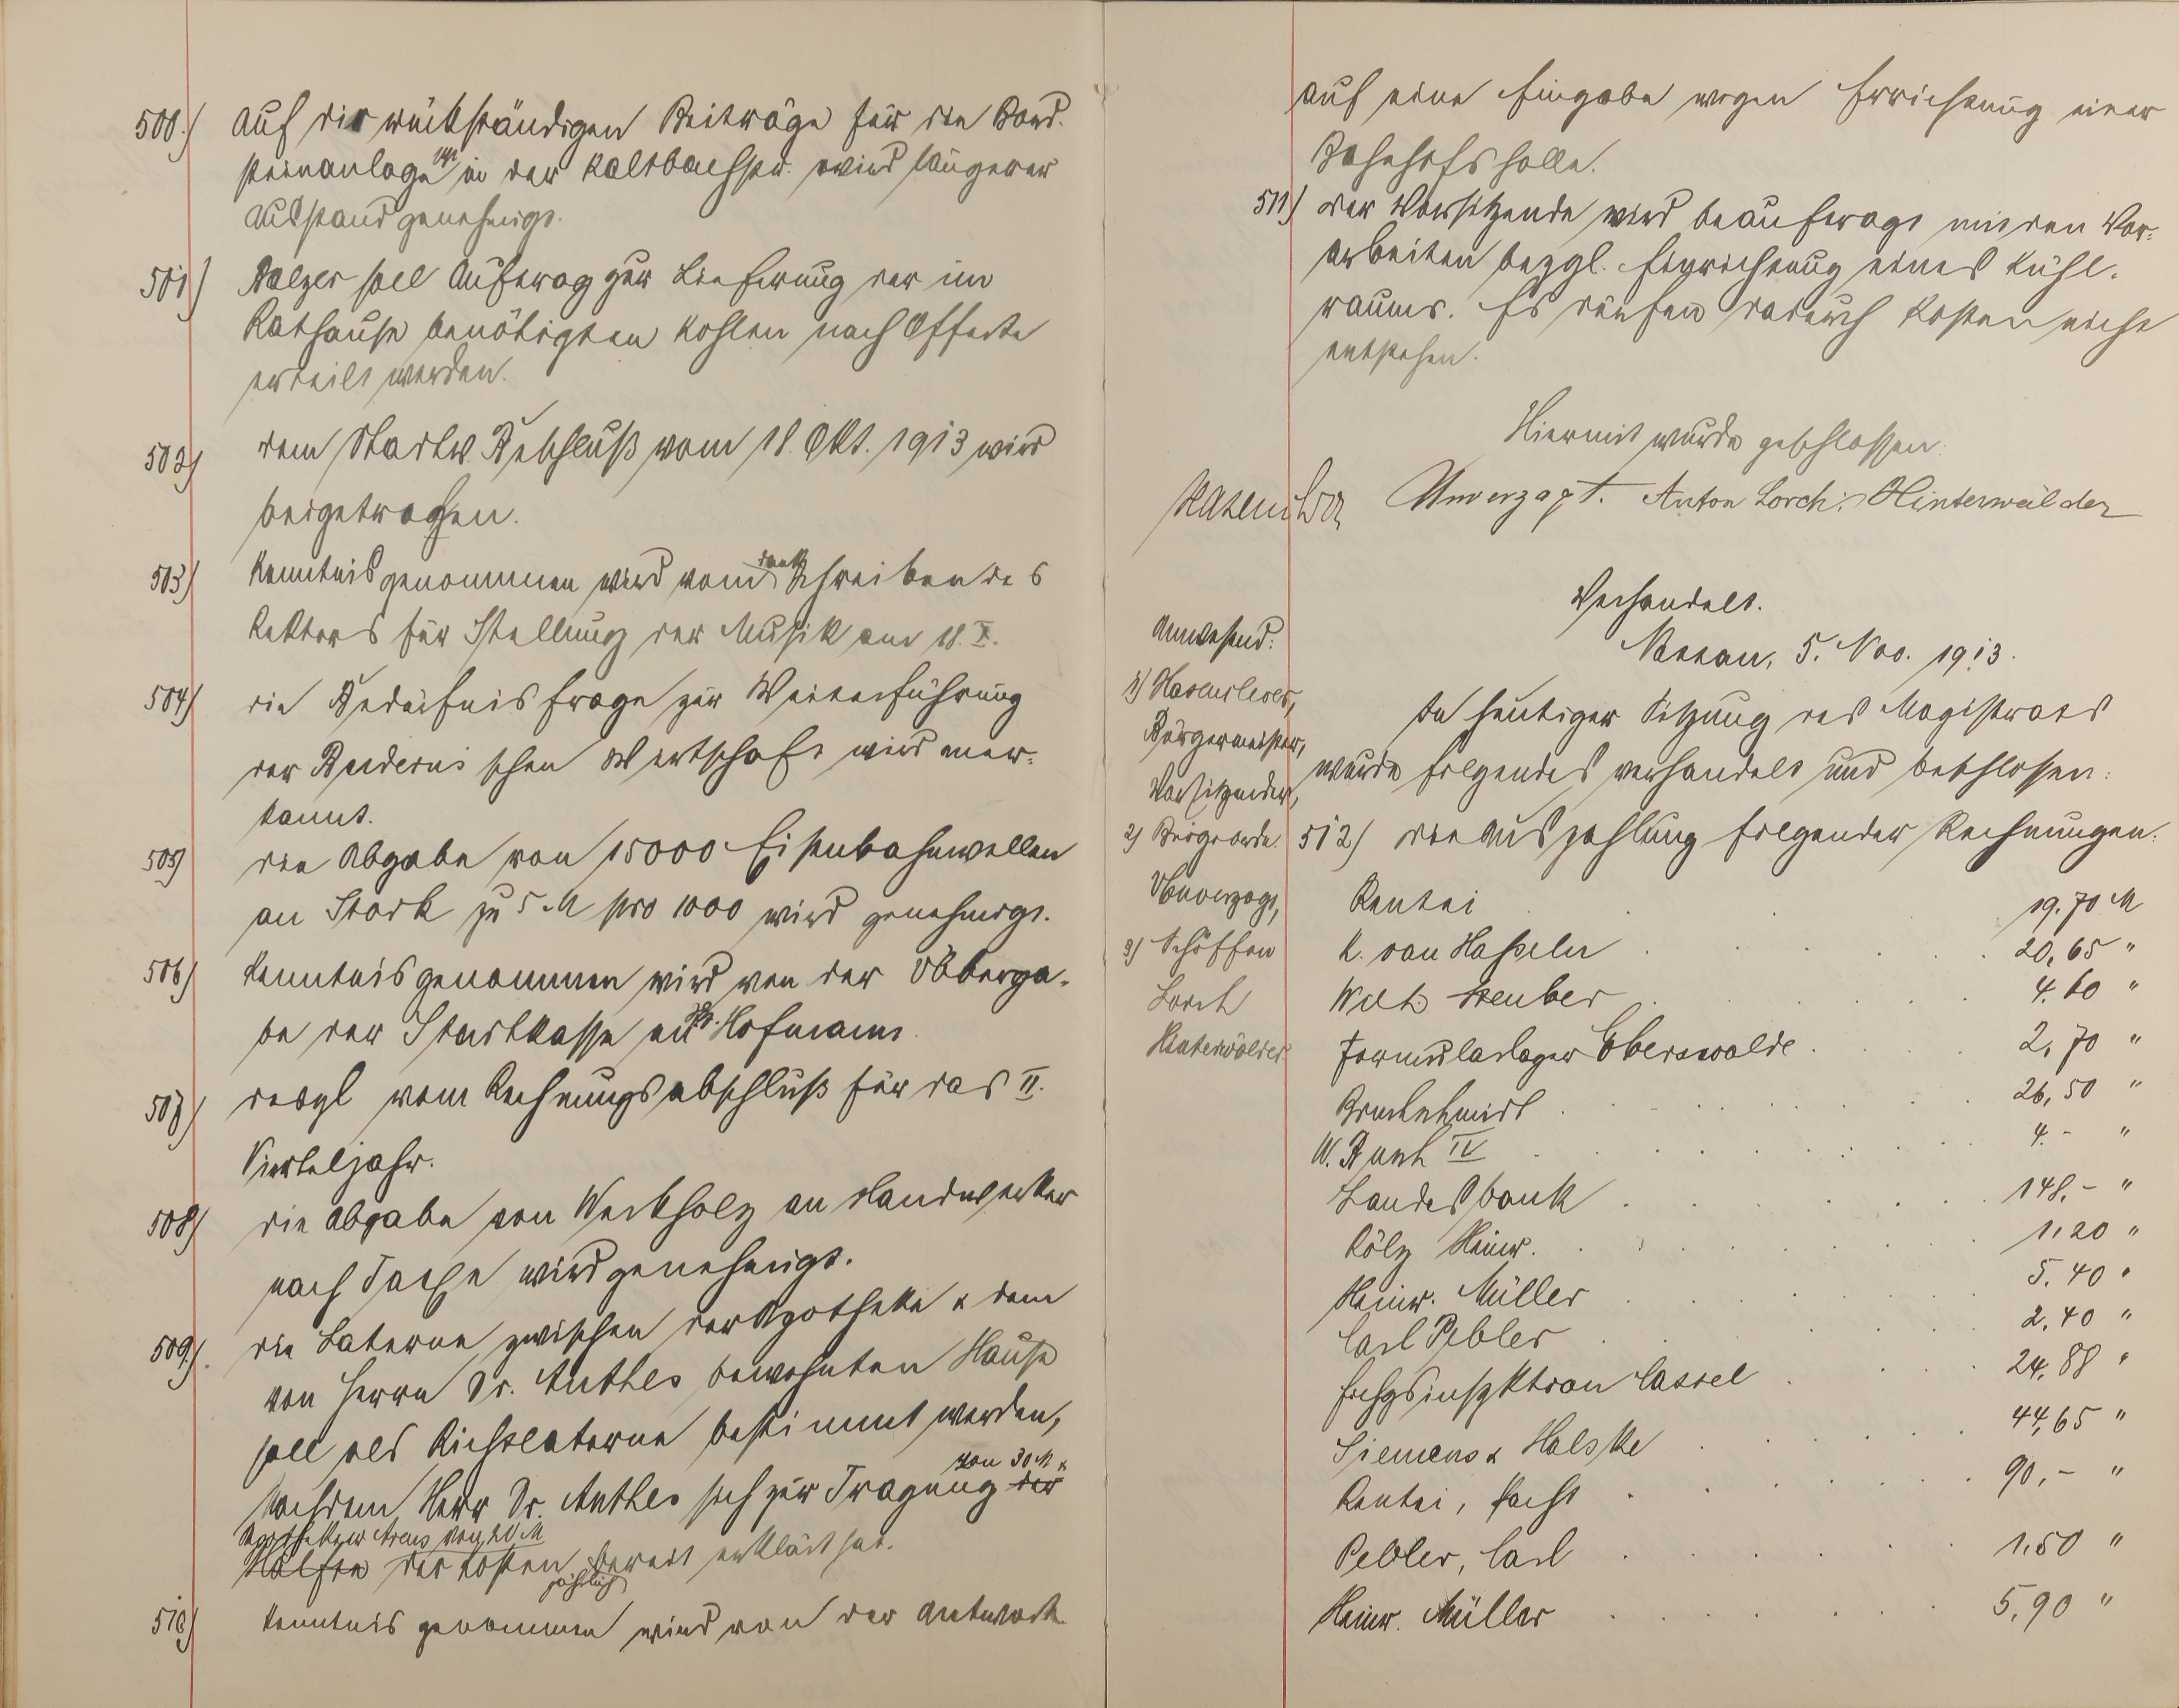 500.) Auf die rückständigen Beiträge für die Bord-
steinanlage in der Kaltbachstr. wird längerer
Ausstand genehmigt.
501) Balzer soll Auftrag zur Lieferung der im
Rathause benötigten Kohlen nach Offerte
erteilt werden.
502) dem Stadtv. Beschluß vom 18. Okt. 1913 wird
beigetreten.
503) Kenntnis genommen wird vom Dank Schreiben des
Rektors für Stellung der Musik am 18. X.
504) die Bedürfnisfrage zur Weiterführung
der Buderus'schen Wirtschaft wird aner-
kannt.
505) die Abgabe von 15000 Eisenbahnwellen
an Stork zu 5 M pro 1000 wird genehmigt.
506) Kenntnis genommen wird von der Überga-
be der Stadtkasse an Hofmann.
507) desgl vom Rechnungsabschluß für das II.
Vierteljahr.
508) die Abgabe von Werkholz an Handwerker
nach Taxe wird genehmigt.
509.) die Laterne zwischen der Apotheke & dem
von Herrn Dr. Anthes bewohnten Hause
soll als Richtlaterne bestimmt werden,
von 30 M &
nachdem Herr Dr. Anthes sich zur Tragung der
Apotheker Arens von 20 M
Hälfte der Kosten bereit erklärt hat.
jährlich
510) Kenntnis genommen wird von der Antwort
auf eine Eingabe wegen Errichtung einer
Bahnhofshalle.
511) der Vorsitzende wird beauftragt mit den Vor-
arbeiten bezgl. Einrichtung eines Kühl-
raums. Es dürfen dadurch Kosten nicht
entstehen.
Hiermit wurde geschlossen
Hasenclever Unverzagt. Anton Lorch. Hinterwälder
Verhandelt.
Nassau, 5. Nov. 1913.
Anwesend:
1) Hasenclever,
Bürgermeister,
Vorsitzender,
2) Beigeordn.
Unverzagt,
3) Schöffen
Lorch
Hinterwälder
In heutiger Sitzung des Magistrats
wurde folgendes verhandelt und beschlossen:
512) die Auszahlung folgender Rechnungen:
Rentei 19.70 M
K. van Hasseln 20,65 "
Wilh. Heuber 4.60 "
Formularlager Eberswalde 2,70 "
Bruchschmidt 26,50 "
W. Busch IV 4.- "
Landesbank 148.- "
Kölz Heinr. 1.20 "
Heinr. Müller 5.40 "
Carl Pebler 2.40 "
Eichgsinspktion Cassel 24,88 "
Siemens & Halske 44,65 "
Rentei, Pacht 90,- "
Pebler, Carl 1.50 "
Heinr. Müller 5,90 "